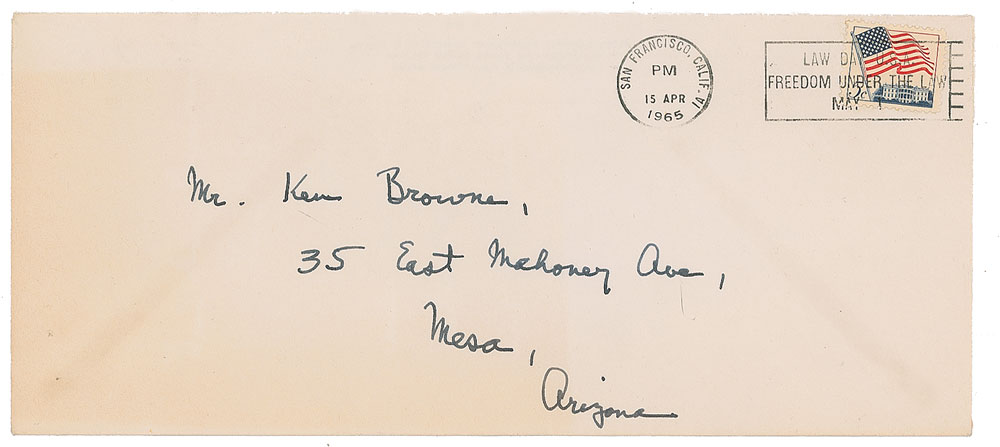 SAN FRANCISCO, CALIF. VI
PM
15 APR
1965
LAW DAY U.S.A.
FREEDOM UNDER THE LAW
MAY 1
5¢
Mr. Ken Browne,
35 East Mahoney Ave,
Mesa,
Arizona